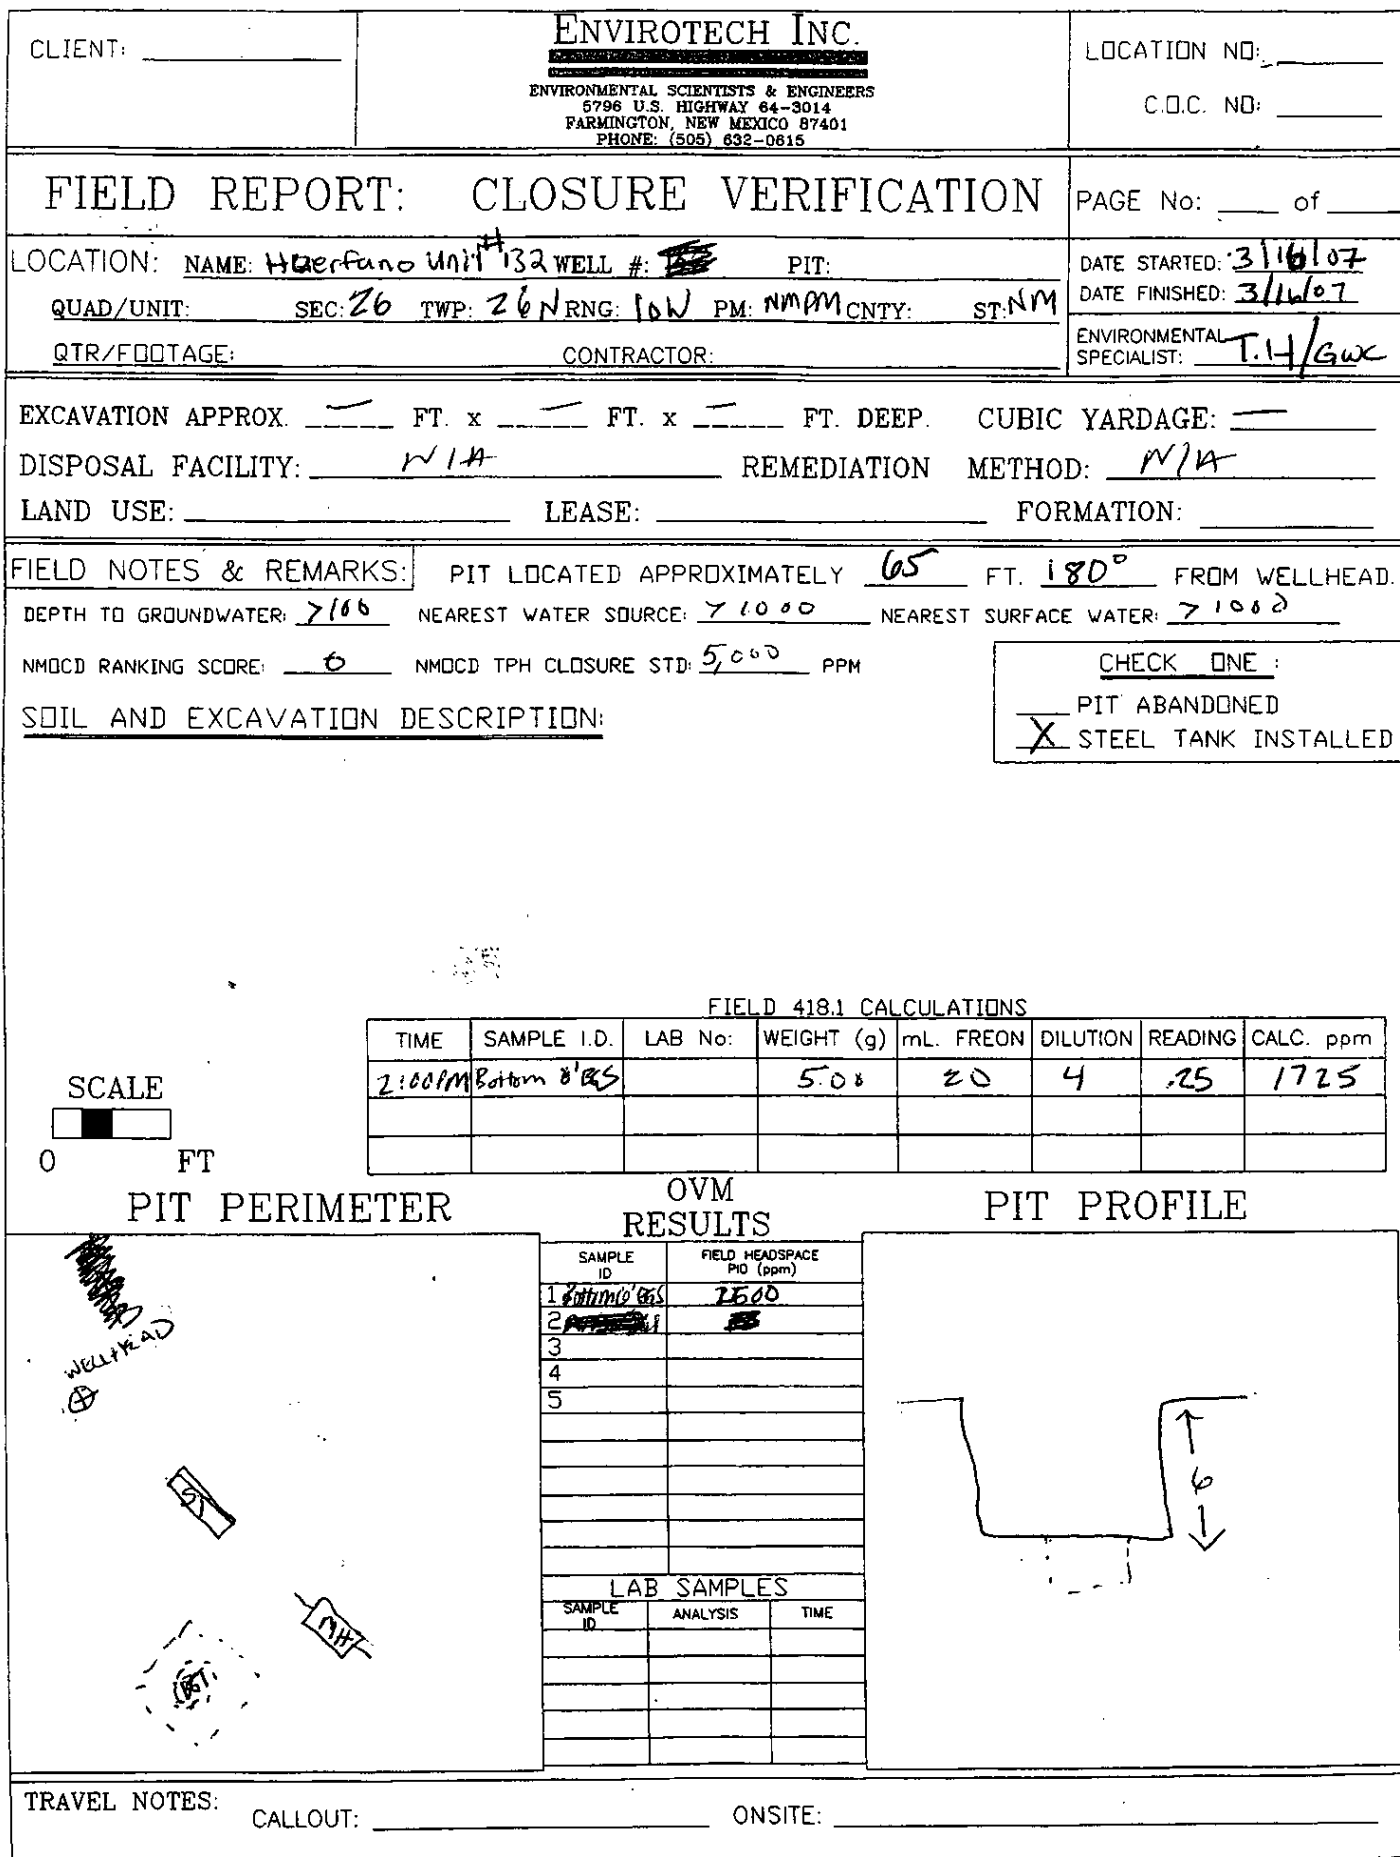 CLIENT:
ENVIROTECH INC.
ENVIRONMENTAL SCIENTISTS & ENGINEERS
5796 U.S. HIGHWAY 64-3014
FARMINGTON, NEW MEXICO 87401
PHONE: (505) 632-0615
LOCATION NO:
C.O.C. NO:
FIELD REPORT: CLOSURE VERIFICATION
PAGE No: of
LOCATION: NAME: Huerfano Unit #132 WELL #: PIT:
QUAD/UNIT: SEC: 26 TWP: 26N RNG: 10W PM: NMPM CNTY: ST: NM
QTR/FOOTAGE: CONTRACTOR:
DATE STARTED: 3/16/07
DATE FINISHED: 3/16/07
ENVIRONMENTAL
SPECIALIST: T.H/GWC
EXCAVATION APPROX. — FT. x — FT. x — FT. DEEP. CUBIC YARDAGE: —
DISPOSAL FACILITY: N/A REMEDIATION METHOD: N/A
LAND USE: LEASE: FORMATION:
FIELD NOTES & REMARKS: PIT LOCATED APPROXIMATELY 65 FT. 180° FROM WELLHEAD.
DEPTH TO GROUNDWATER: >100 NEAREST WATER SOURCE: >1000 NEAREST SURFACE WATER: >1000
NMOCD RANKING SCORE: 0 NMOCD TPH CLOSURE STD: 5,000 PPM
CHECK ONE :
PIT ABANDONED
X STEEL TANK INSTALLED
SOIL AND EXCAVATION DESCRIPTION:
FIELD 418.1 CALCULATIONS
TIME SAMPLE I.D. LAB No: WEIGHT (g) mL. FREON DILUTION READING CALC. ppm
2:00PM Bottom BGS 5.00 20 4 .25 1725
SCALE
0 FT
PIT PERIMETER
OVM
RESULTS
PIT PROFILE
SAMPLE
ID
FIELD HEADSPACE
PID (ppm)
1 Bottom 6' BGS
2
3
4
5
WELLHEAD
MH
BGT
6
LAB SAMPLES
SAMPLE
ID
ANALYSIS
TIME
TRAVEL NOTES:
CALLOUT: ONSITE: